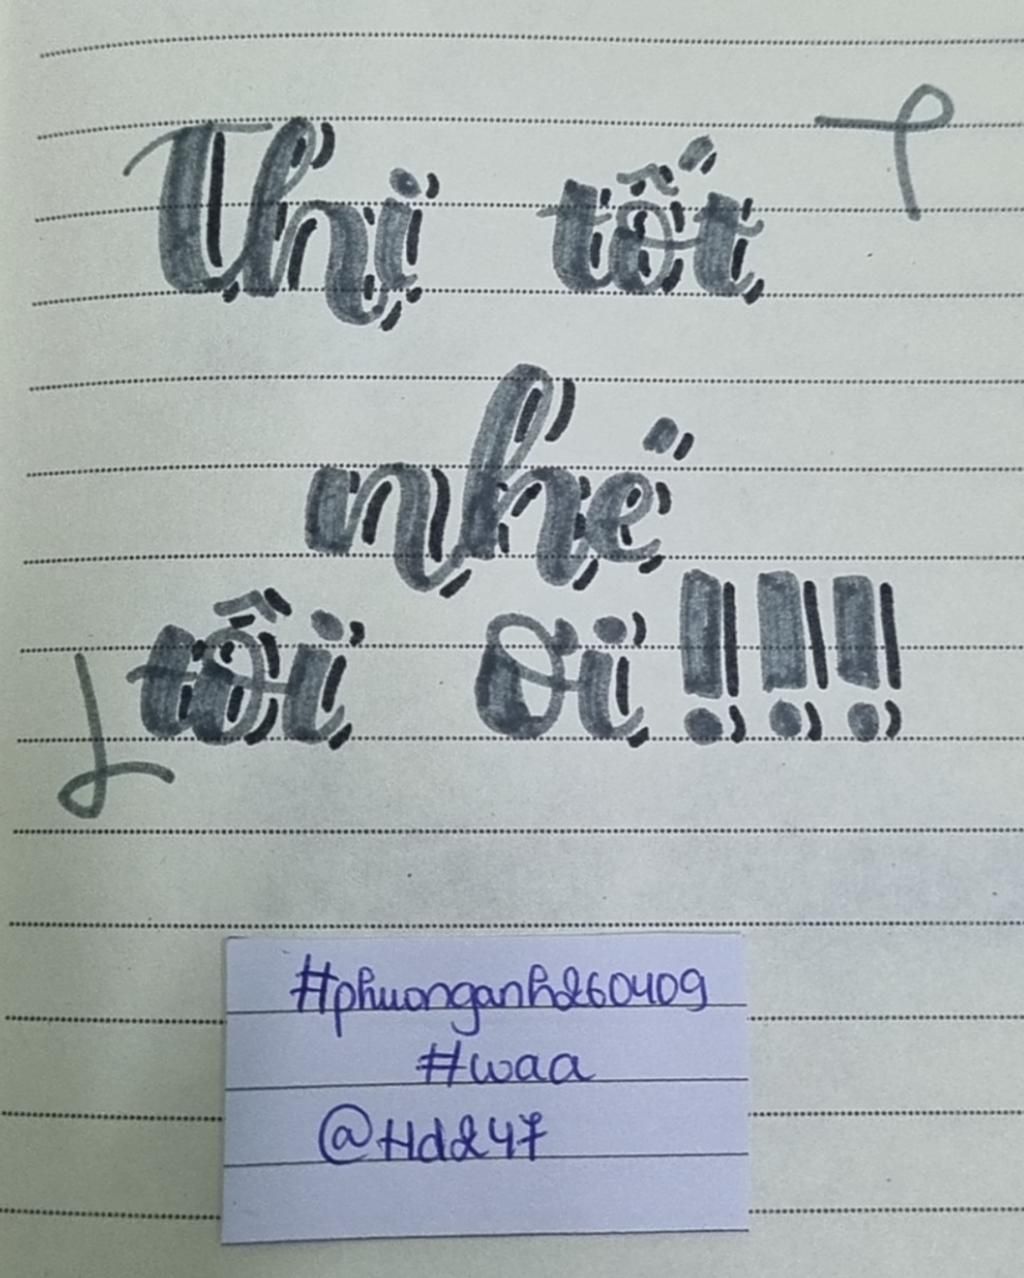 Thi tốt
nhé
tôi ơi!!!
#phuonganh260409
#waa
@Hd247